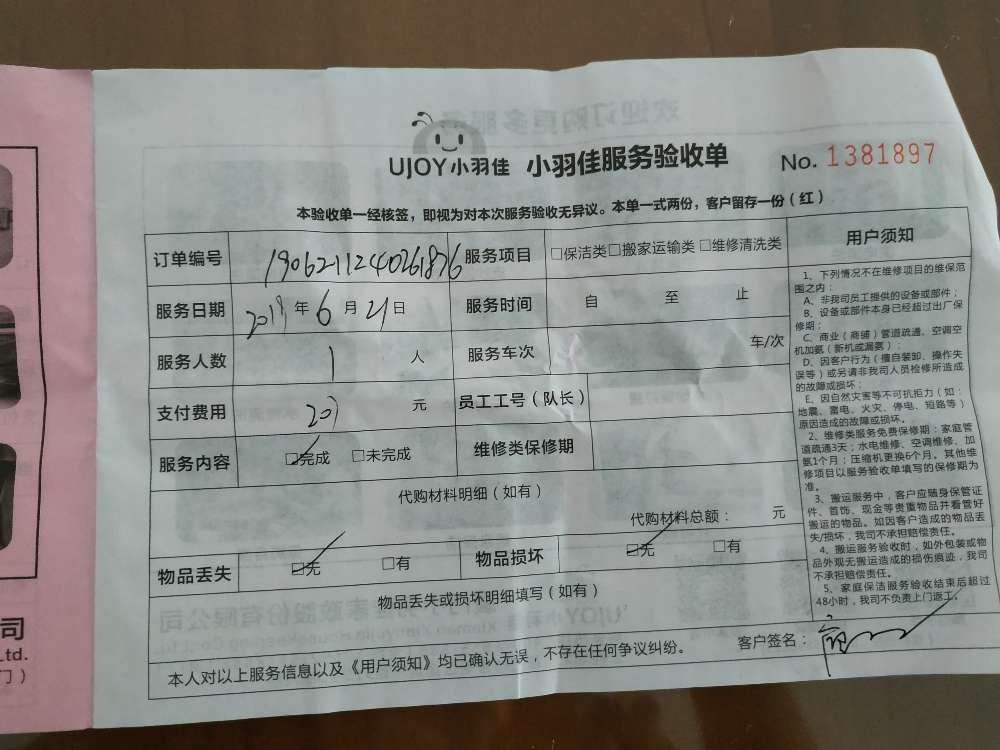 UJOY小羽佳 小羽佳服务验收单 No. 1381897
本验收单一经核签，即视为对本次服务验收无异议。本单一式两份，客户留存一份（红）
订单编号 19062112440261876 服务项目 □保洁类□搬家运输类□维修清洗类
服务日期 2019年6月21日 服务时间 自 至 止
服务人数 1 人 服务车次 车/次
支付费用 207 元 员工工号（队长）
服务内容 □完成 □未完成 维修类保修期
代购材料明细（如有）
代购材料总额： 元
物品丢失 □无 □有 物品损坏 □无 □有
物品丢失或损坏明细填写（如有）
本人对以上服务信息以及《用户须知》均已确认无误，不存在任何争议纠纷。 客户签名：
用户须知
1、下列情况不在维修项目的维保范
围之内：
A、非我司员工提供的设备或部件；
B、设备或部件本身已经超过出厂保
修期；
C、商业（商铺）管道疏通、空调空
机加氨（新机或漏氨）；
D、因客户行为（擅自装卸、操作失
误等）或另请非我司人员检修所造成
的故障或损坏；
E、因自然灾害等不可抗拒力（如：
地震、雷电、火灾、停电、短路等）
原因造成的故障或损坏。
2、维修类服务免费保修期：家庭管
道疏通3天；水电维修、空调维修、加
氨1个月；压缩机更换6个月。其他维
修项目以服务验收单填写的保修期为
准。
3、搬运服务中，客户应随身保管证
件、首饰、现金等贵重物品并看管好
搬运的物品。如因客户造成的物品丢
失/损坏，我司不承担赔偿责任。
4、搬运服务验收时，如外包装或物
品外观无搬运造成的损伤痕迹，我司
不承担赔偿责任。
5、家庭保洁服务验收结束后超过
48小时，我司不负责上门返工。
司
Ltd.
门）